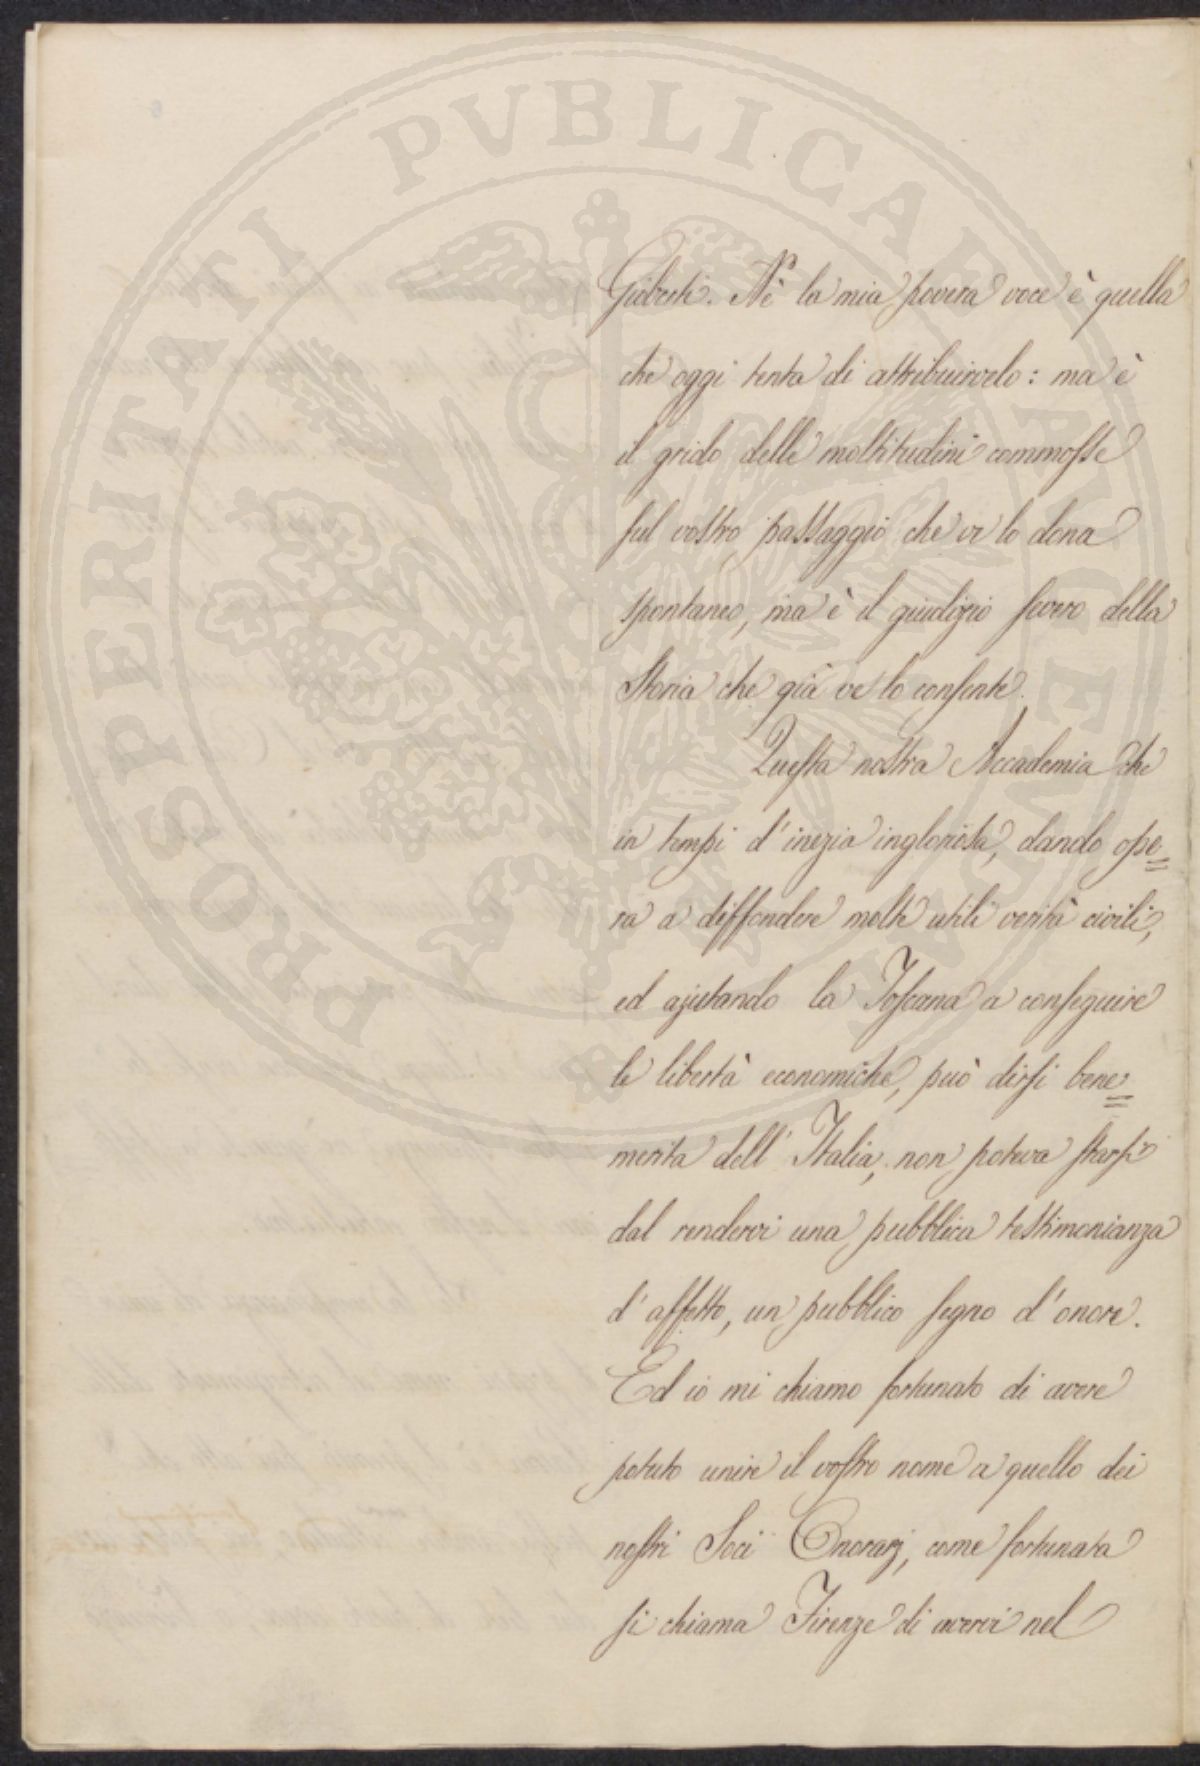 PROSPERITATI PVBLICAE AVGENDAE
Gioberti. Nè la mia povera voce è quella
che oggi tenta di attribuirvelo: ma è
il grido delle moltitudini commosse
sul vostro passaggio che vi lo dona
spontaneo, ma è il giudizio severo della
Storia che già ve lo consente.
Questa nostra Accademia che
in tempi d'inezia ingloriosa, dando ope=
ra a diffondere molte utili verità civili,
ed ajutando la Toscana a conseguire
le libertà economiche, può dirsi bene=
merita dell'Italia, non poteva starsi
dal rendervi una pubblica testimonianza
d'affetto, un pubblico segno d'onore.
Ed io mi chiamo fortunato di avere
potuto unire il vostro nome a quello dei
nostri Soci Onorarj, come fortunata
si chiama Firenze di avervi nel